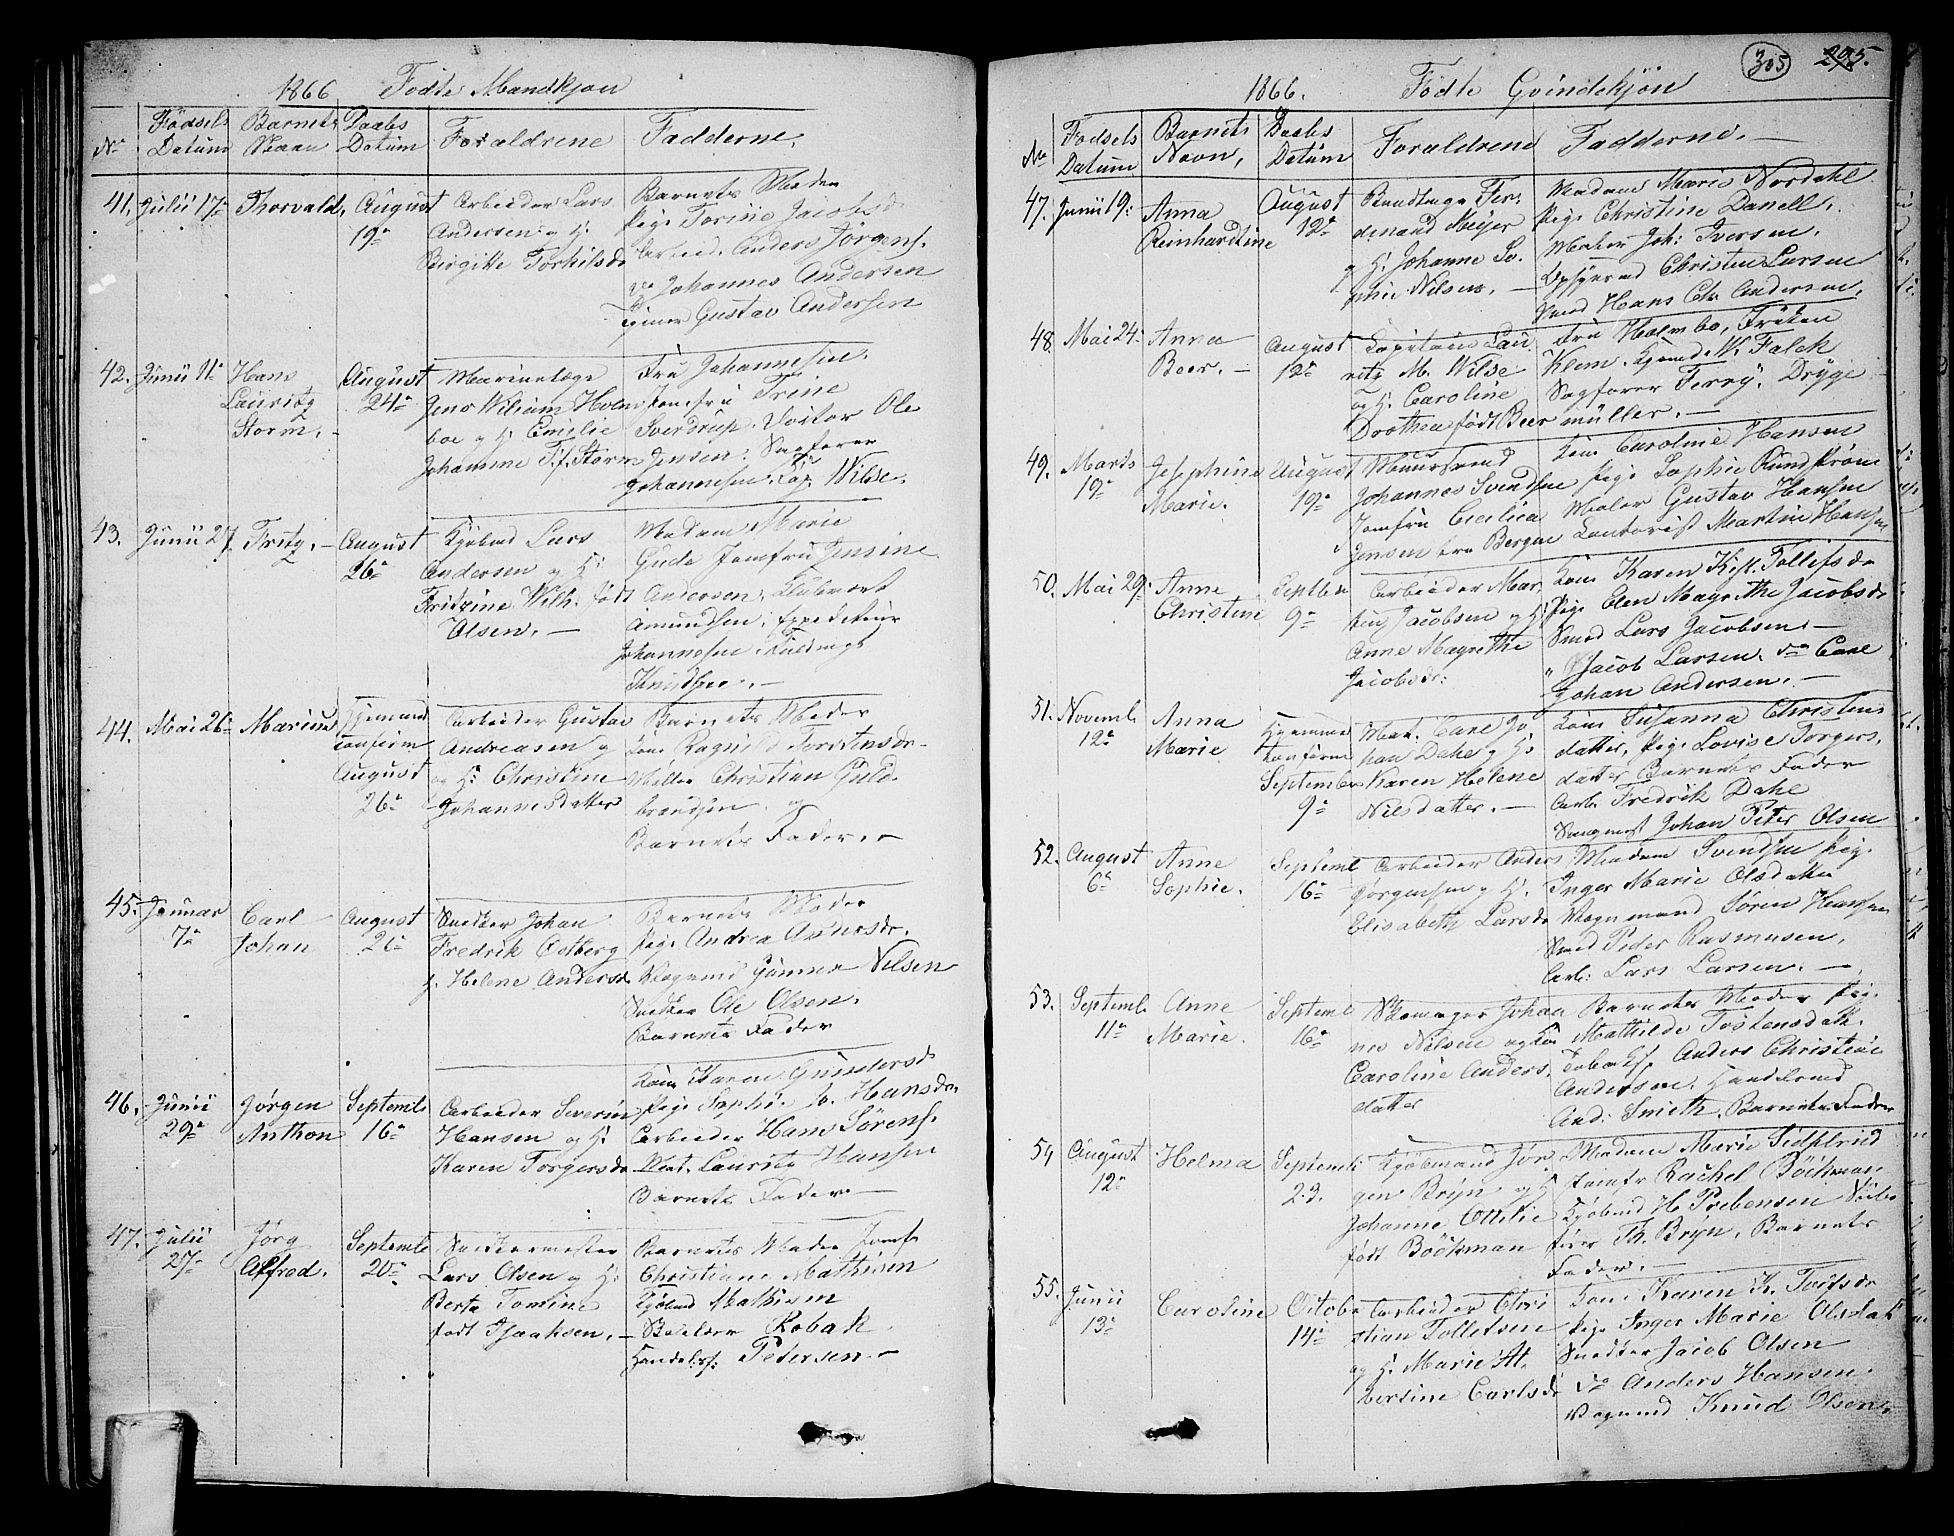 1866 Födte Mandkjøn
No
Födsels Datum
Barnets Navn
Daabs Datum
Forældrene
Fadderne.
41. Julii 17de
Thorvald,
August 19de
Arbeider Lars
Andersen og H:
Birgitte Torkilsdr
Barnets Moder
Pige Torine Jacobsd.
Arbeid. Anders Jörgens.
Johannes Andersen
Gustav Andersen
42. Junii 11te
Hans
Lauritz
Storm. -
August 24de
Marinelæge
Jens Wiliam Holm
boe og H. Emilie
Johanne F. f. Storm
Fru Johannesen.
Jomfru Trine
Sverdrup. Doktor Ole
Jensen. Sagförer
Johannesen. Cap. Wilse.
43. Junii 27
Fritz. -
August 26de
Kjøbmd Lars
Andersen og H:
Fritzine Wilh. født
Olsen. -
Madam Marie
Gude Jomfru Jensine
Andersen.
Amundsen. Expediteur
Johannesen. Fuldmægt
Knudsen. -
44. Mai 26de
Marius
Hjemmed
confirm
August
26de
Arbeider Gustav
Andreasen og
H: Christine
Johannesdatter
Barnets Moder
Kone Ragnild Torstensdr
Møller Christian Guld
brandsen og
Barnets Fader. -
45. Januar 7de
Carl
Johan
August 26de
Snedker Johan
Fredrik Østberg
H. Helene Andersd
Barnets Moder
Pige Andrea Andersdr.
Vognmd Gunner Nilsen
Snedker Ole Olsen.
Barnets Fader
46. Junii 29de
Jørgen
Anthon
Septembr 16de
Arbeider Severin
Hansen og H:
Karen Torgersdr
Kone Karen Gundersd
Pige Sophie H. Hansdr.
Arbeider Hans Sörens.
Mat. Lauritz Hansen
Barnets Fader -
47. Julii 27de
Jørg
Alfred.
Septembr 20de
Snedkermester
Lars Olsen og H:
Berta Tomine
født Isaaksen. -
Barnets Moder Jomfr
Christiane Mathisen
Kjøbmd Mathisen
Robak
Handelsf. Petersen. -
305 295.
1866. Födte Qvindekjøn
No
Fødsels Datum
Barnets Navn,
Daabs Datum
Forældrene
Fadderne. -
47. Junii 19:
Anna
Reinhardtine
August 12te
Fer-
dinand Meyer
og H. Johanne So-
phie Nilsen. -
Madam Marie Nordahl
Pige Christine Danell.
Maler Joh: Iversen.
Opsynsmd Christen Larsen
Smed Hans Chr. Andersen.
48. Mai 24:
Anna
Beer. -
August 12te
Capitain Lau-
ritz M. Wilse
og H. Caroline
Dorthea født Beer
Fru Holmbo, Frøken
Klem. Kjømd. W. Falck
Sagfører Ferry. Dryge
müller. -
49. Marts 19de
Josephine
Marie.
August 19de
Muursvend
Johannes Svendsen
Jomfru Cecilia
Jensen fra Bergen
Kone Caroline Hansen
Pige Sophie Rundstrøm
Maler Gustav Hansen
Contorist Martin Hansen
50. Mai 29:
Anne
Christine
Septber 9de
Arbeider Mar-
tin Jacobsen og H:
Anne Magrethe
Jacobsdr:
Kone Karen Kjst. Tollefsdr
Pige Elen Magrethe Jacobsdr
Smed Lars Jacobsen. -
" Jacob Larsen. do Carl
Johan Andersen. -
51. Novemb 12te
Anna
Marie
Hjemme
konfirme
September
9de
Mat. Carl Jo-
han Dahl og H:
Karen Helene
Nilsdatter. -
Kone Susanna Christens
datter, Pige Lovise Torgers.
datter Barnets Fader
Arb. Fredrik Dahl
Johan Peter Olsen
52. August 6te
Anne
Sophie.
Septemb 16de
Arbeider Anders
Jørgensen og H.
Elisabeth Larsdr
Madam Svendsen Pige
Inger Marie Olsdatter
Vognmand Søren Hansen
Smed Peder Rasmusen.
Arb: Lars Larsen. -
53. Septemb 11te
Anne
Marie.
Septemb 16de
Skomager Johan
nes Nilsen og Ko
Caroline Anders.
datter
Barnets Moder Pige
Mathilde Tostensdatt.
Anders Christian
Andersen. Handelsmd
And: Smith. Barnets Fader
54 August 12te
Helma
Septemb 23.
Kjøbmand Jør
gen Bryn og H.
Johanne Ottilie
født Böckman
Madam Marie Sidsfried
Jomfr Rachel Böckman
Kjøbmd H. Prebensen
fører Th. Bryn, Barnets
Fader. -
55. Junii 13de
Caroline
Octobr 14de
Arbeider Chri
stian Tollefsen
og H. Marie Al
bertine Carlsd
Kone Karen K. Tolfsdr
Pige Inger Marie Olsdatt
Snedker Jacob Olsen
do Anders Hansen.
Vognmd Knud Olsen.